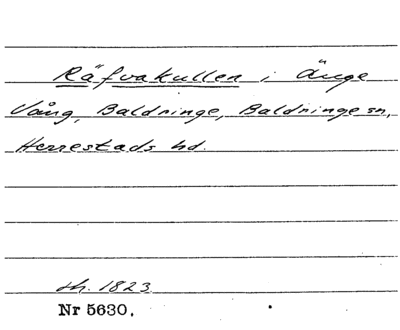 Räfvakullen i Änge
Vång, Baldringe, Baldringe sn,
Herrestads hd.
sk. 1823
Nr 5630.